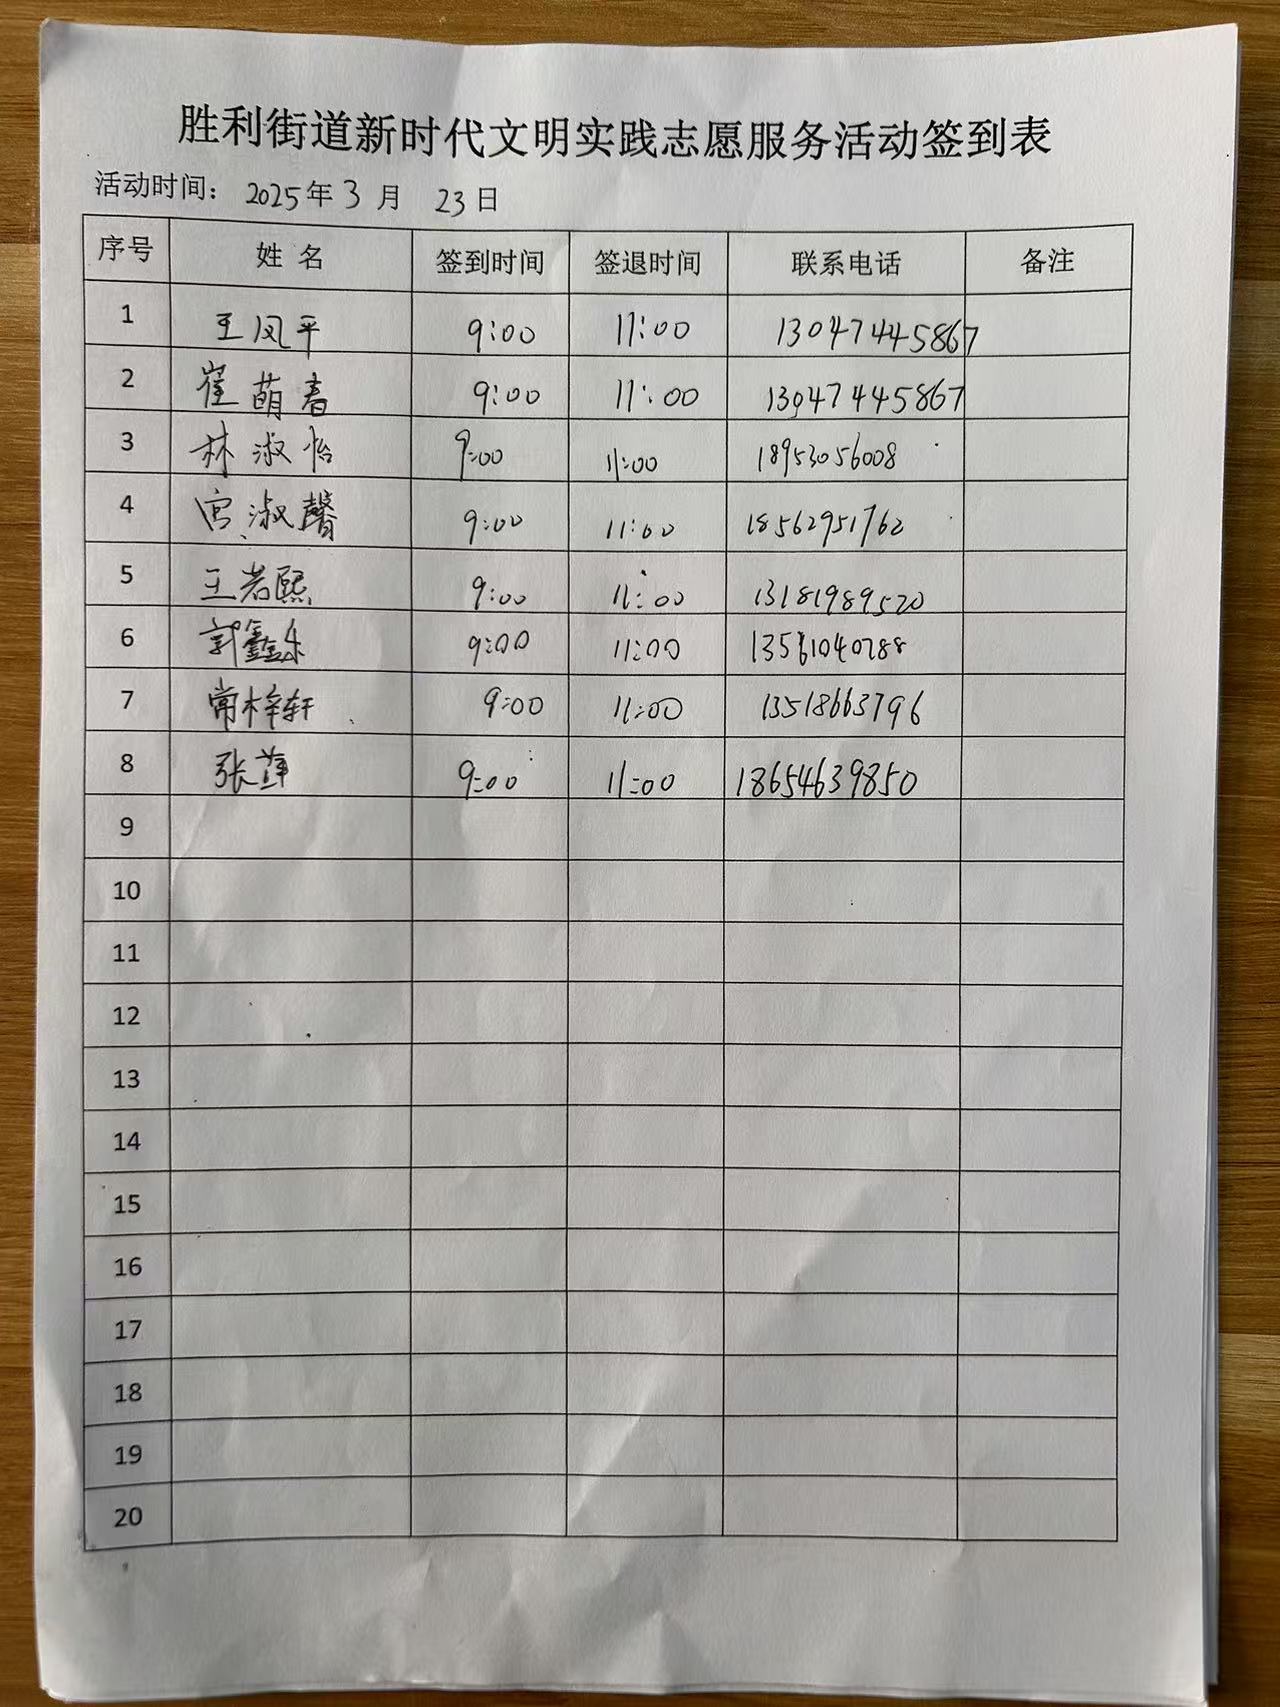 胜利街道新时代文明实践志愿服务活动签到表
活动时间： 2025年 3 月 23 日
序号 姓 名 签到时间 签退时间 联系电话 备注
1 王凤平 9:00 11:00 13047445867
2 崔萌春 9:00 11:00 13047445867
3 林淑怡 9:00 11:00 18953056008
4 宫淑馨 9:00 11:00 18562951762
5 王若熙 9:00 11:00 13181989520
6 郭鑫乐 9:00 11:00 13561040288
7 常梓轩 9:00 11:00 13518663796
8 张萍 9:00 11:00 18654639850
9
10
11
12
13
14
15
16
17
18
19
20